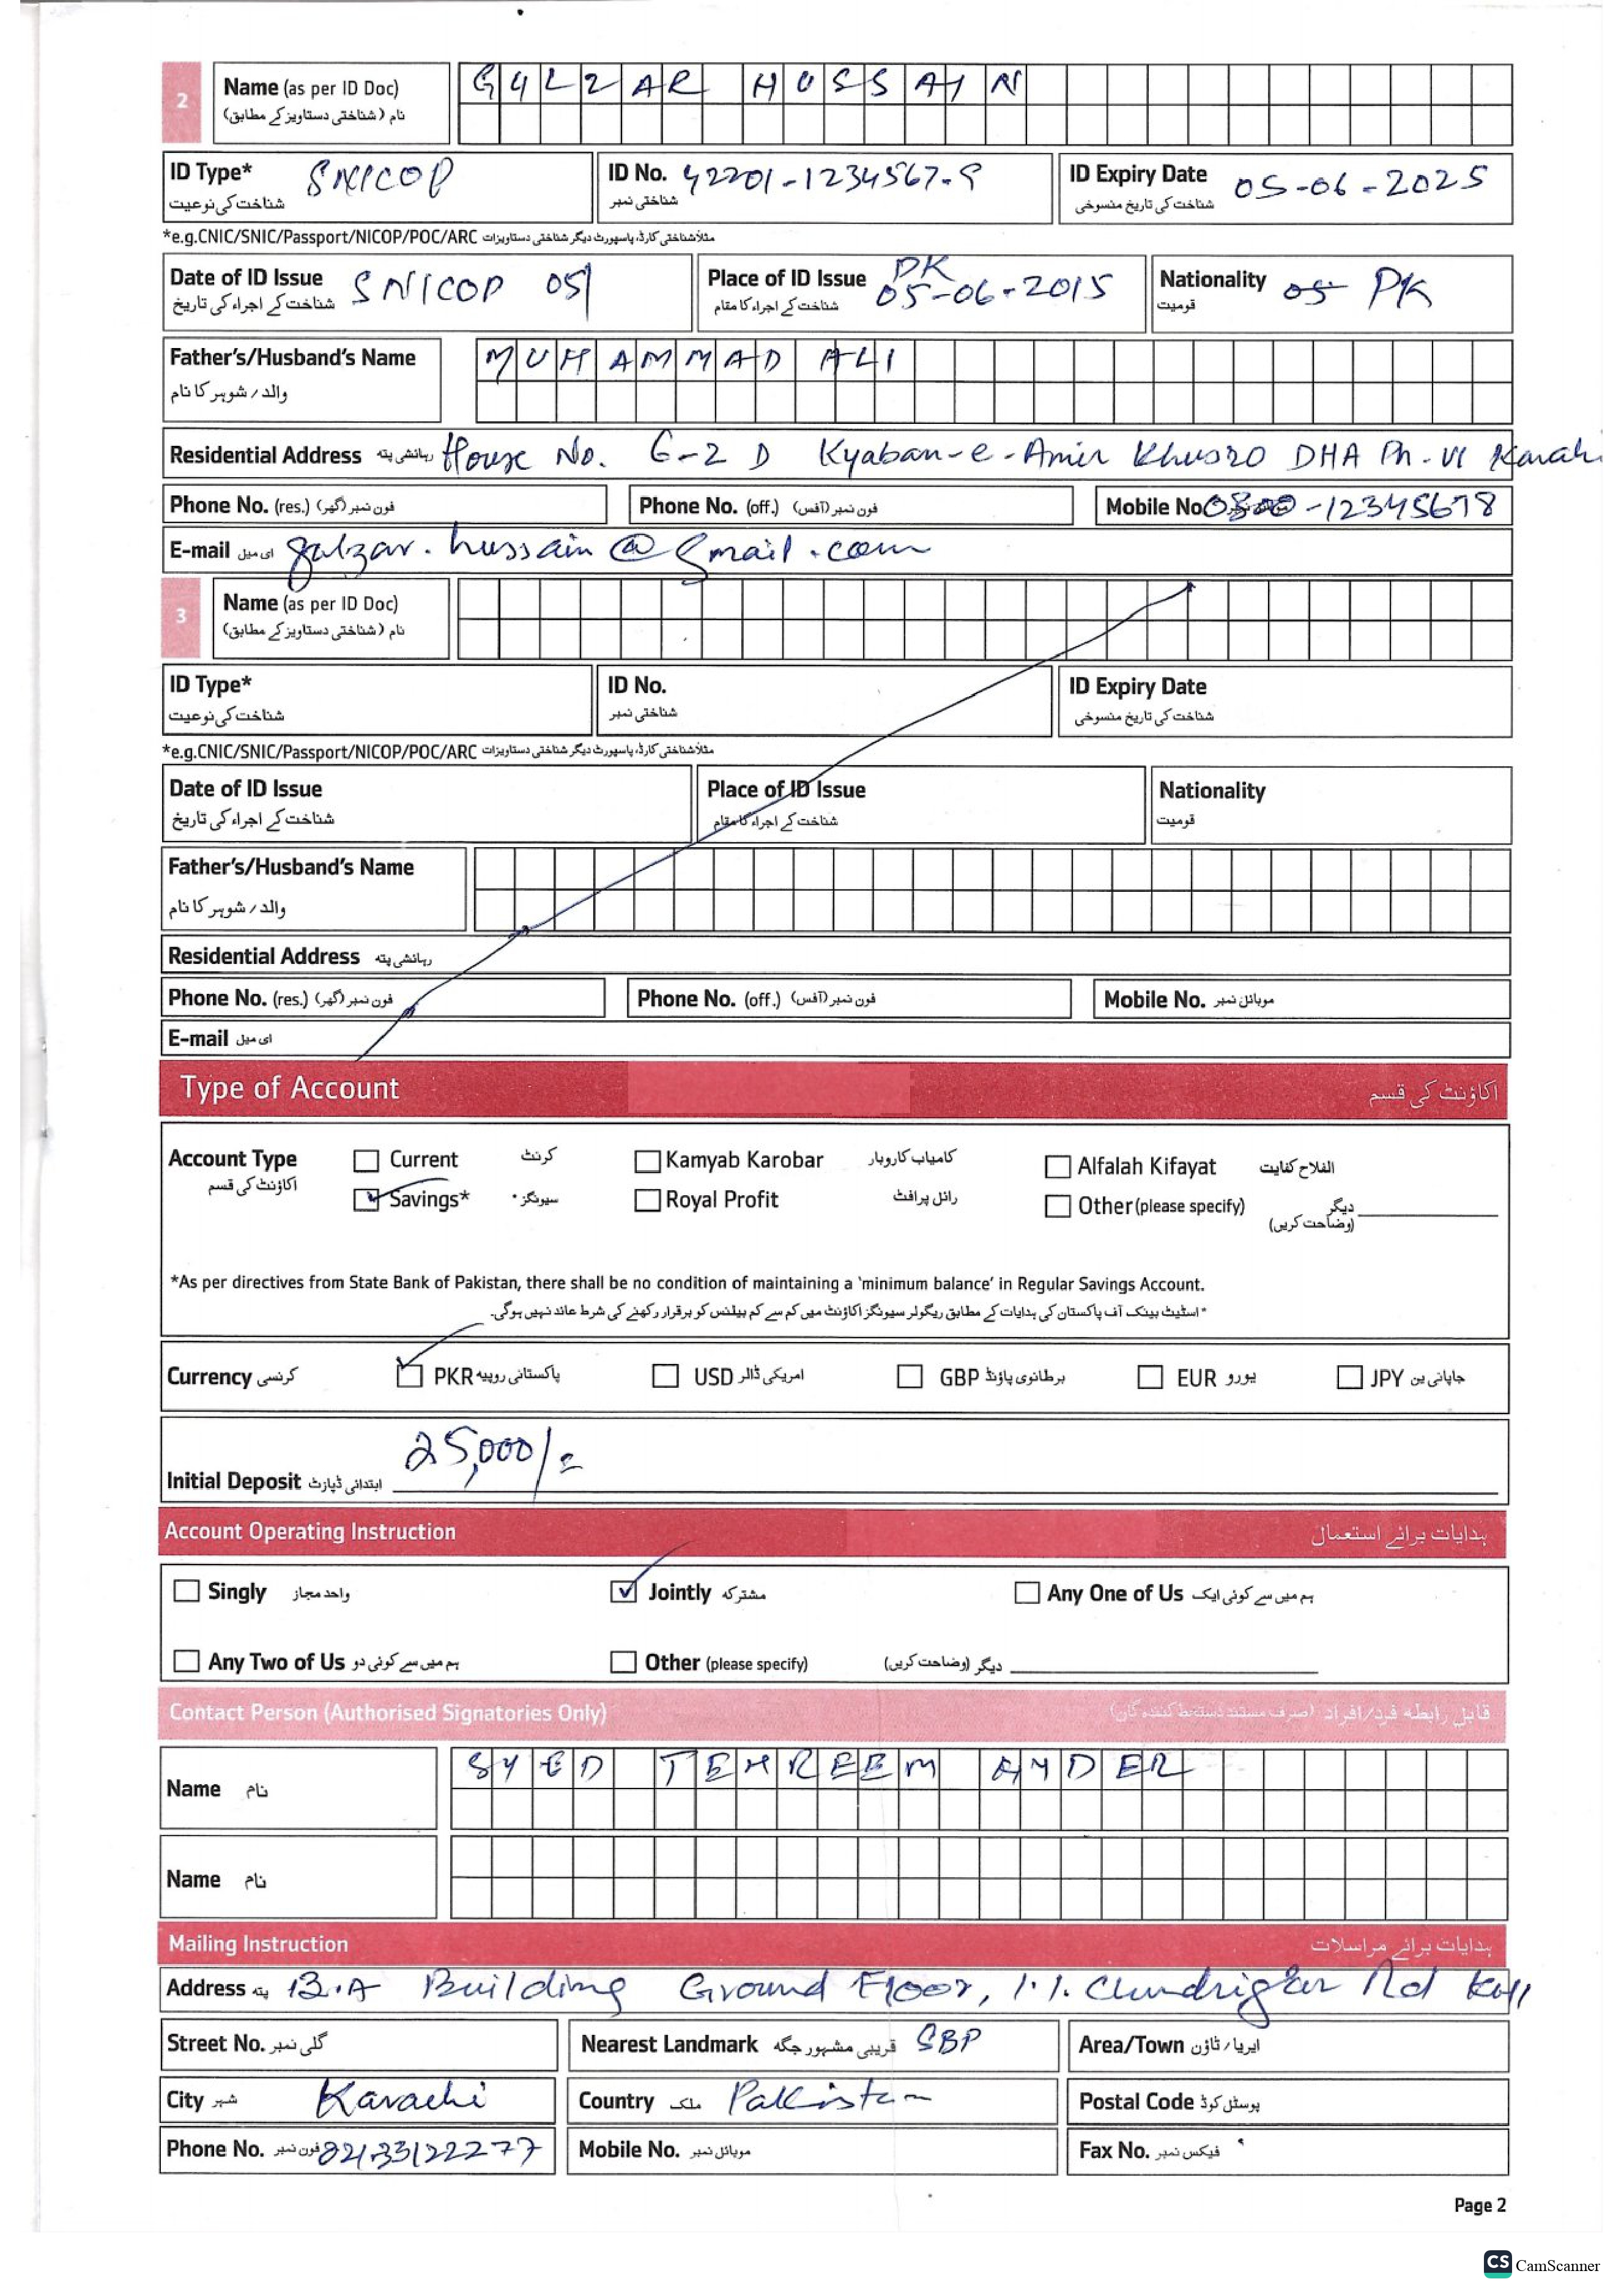 2 Name (as per ID Doc) GULZAR HUSSAIN
نام (شناختی دستاویز کے مطابق)
ID Type* SNICOP ID No. 42201-1234567-9 ID Expiry Date 05-06-2025
شناخت کی نوعیت شناختی نمبر شناخت کی تاریخ منسوخی
*e.g.CNIC/SNIC/Passport/NICOP/POC/ARC مثلاً شناختی کارڈ، پاسپورٹ دیگر شناختی دستاویزات
Date of ID Issue SNICOP 05 Place of ID Issue PK 05-06-2015 Nationality 05 PK
شناخت کے اجراء کی تاریخ شناخت کے اجراء کا مقام قومیت
Father's/Husband's Name MUHAMMAD ALI
والد / شوہر کا نام
Residential Address رہائشی پتہ House No. 6-2 D Kyaban-e-Amir Khusro DHA Ph-VI Karachi
Phone No. (res.) فون نمبر (گھر) Phone No. (off.) فون نمبر (آفس) Mobile No. 0300-12345678
E-mail ای میل gulzar.hussain@gmail.com
3 Name (as per ID Doc)
نام (شناختی دستاویز کے مطابق)
ID Type* ID No. ID Expiry Date
شناخت کی نوعیت شناختی نمبر شناخت کی تاریخ منسوخی
*e.g.CNIC/SNIC/Passport/NICOP/POC/ARC مثلاً شناختی کارڈ، پاسپورٹ دیگر شناختی دستاویزات
Date of ID Issue Place of ID Issue Nationality
شناخت کے اجراء کی تاریخ شناخت کے اجراء کا مقام قومیت
Father's/Husband's Name
والد / شوہر کا نام
Residential Address رہائشی پتہ
Phone No. (res.) فون نمبر (گھر) Phone No. (off.) فون نمبر (آفس) Mobile No. موبائل نمبر
E-mail ای میل
Type of Account اکاؤنٹ کی قسم
Account Type Current کرنٹ Kamyab Karobar کامیاب کاروبار Alfalah Kifayat الفلاح کفایت
اکاؤنٹ کی قسم Savings* سیونگز* Royal Profit رائل پرافٹ Other (please specify) دیگر (وضاحت کریں)
*As per directives from State Bank of Pakistan, there shall be no condition of maintaining a 'minimum balance' in Regular Savings Account.
*اسٹیٹ بینک آف پاکستان کی ہدایات کے مطابق ریگولر سیونگز اکاؤنٹ میں کم سے کم بیلنس کو برقرار رکھنے کی شرط عائد نہیں ہوگی۔
Currency کرنسی PKR پاکستانی روپیہ USD امریکی ڈالر GBP برطانوی پاؤنڈ EUR یورو JPY جاپانی ین
Initial Deposit ابتدائی ڈپازٹ 25,000/=
Account Operating Instruction ہدایات برائے استعمال
Singly واحد مجاز Jointly مشترکہ Any One of Us ہم میں سے کوئی ایک
Any Two of Us ہم میں سے کوئی دو Other (please specify) دیگر (وضاحت کریں)
Contact Person (Authorised Signatories Only) قابل رابطہ فرد/افراد (صرف مستند دستخط کنندگان)
Name نام SYED TEHREEM AYDER
Name نام
Mailing Instruction ہدایات برائے مراسلات
Address پتہ B.A Building Ground Floor, I.I. Chundrigar Rd Khi
Street No. گلی نمبر Nearest Landmark قریبی مشہور جگہ SBP Area/Town ایریا / ٹاؤن
City شہر Karachi Country ملک Pakistan Postal Code پوسٹل کوڈ
Phone No. فون نمبر 02133122277 Mobile No. موبائل نمبر Fax No. فیکس نمبر
Page 2
CS CamScanner